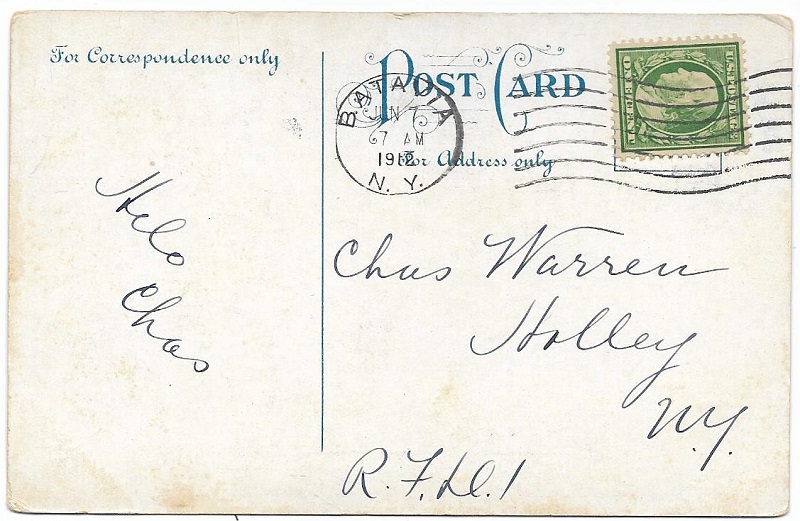 For Correspondence only
POST CARD
BATAVIA
JUN 7
7 AM
1912
N. Y.
For Address only
U.S. POSTAGE
ONE CENT
Helo
Chas
Chas Warren
Holley
N.Y.
R.F.D. 1